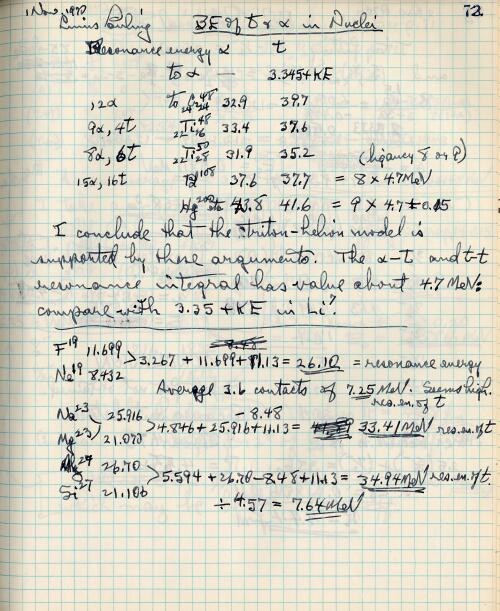 1 Nov. 1970 BE of t & α in Nuclei 72
Linus Pauling
Resonance energy α t
to α — 3.345+KE
, 12α to 24Cr24 48 32.9 39.7
9α, 4t 22Ti26 48 33.4 37.6
8α, 6t 22Ti28 50 31.9 35.2 (ligancy 8 or 9)
15α, 16t 108 37.6 37.7 = 8 x 4.7 MeV
Hg 200 43.8 41.6 = 9 x 4.7 ± 0.15
I conclude that the triton-helion model is
supported by these arguments. The α-t and t-t
resonance integral has value about 4.7 MeV:
compare with 3.35 + KE in Li7.
8.48
F19 11.699 > 3.267 + 11.699 + 11.13 = 26.10 = resonance energy
Ne19 8.432
Average 3.6 contacts of 7.25 MeV. Seems high.
res. en. of t
Na23 25.916 - 8.48
> 4.846 + 25.916 + 11.13 = 33.41 MeV res. en. of t
Mg23 21.070
24 26.70 > 5.594 + 26.70 - 8.48 + 11.13 = 34.94 MeV res. en. of t.
Si27 21.106
÷ 4.57 = 7.64 MeV